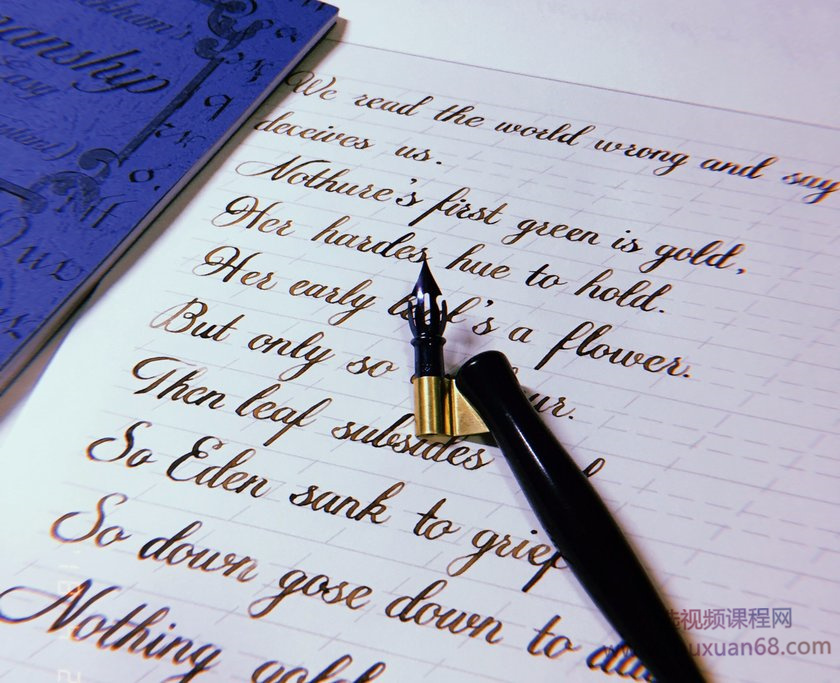 manship
We read the world wrong and say
deceives us.
Nothure's first green is gold,
Her hardes hue to hold.
Her early 's a flower.
But only so
Then leaf subsides
So Eden sunk to grief
So down gose down to
Nothing gold
视频课程网
uxuan68.com